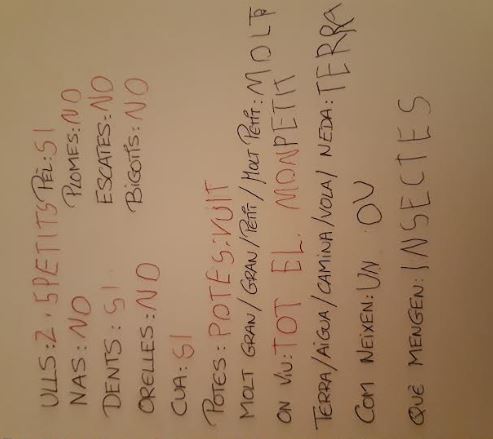 ULLS: 2. 5PETITS PÈL: SI
NAS: NO PLOMES: NO
DENTS: SI ESCATES: NO
ORELLES: NO BIGOTIS: NO
CUA: SI
POTES: POTES: VUIT
MOLT GRAN/GRAN/PETIT/MOLT PETIT: MOLT
ON VIU: TOT EL MON PETIT
TERRA/AIGUA/CAMINA/VOLA/NEDA: TERRA
COM NEIXEN: UN OU
QUÈ MENGEN: INSECTES